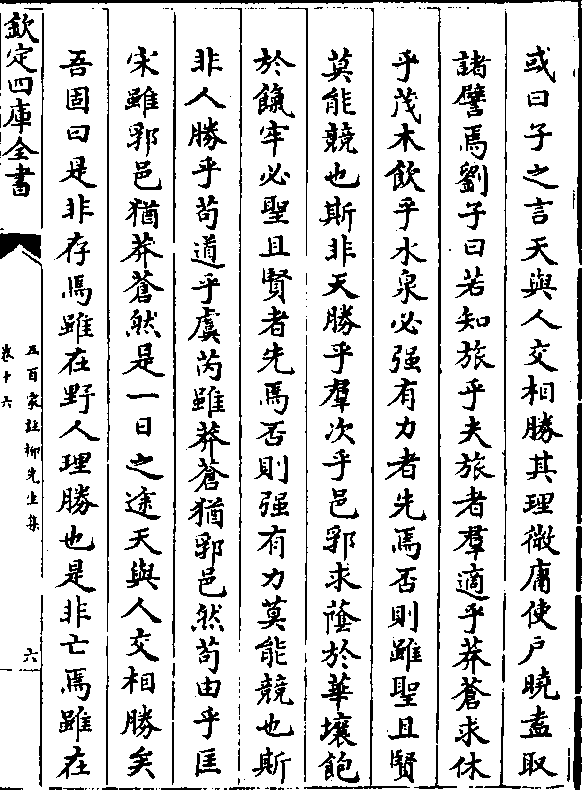 或曰子之言天與人交相勝其理微庸使户曉盍取
諸譬焉劉子曰若知旅乎夫旅者羣適乎莽蒼求休
乎茂木飲乎水泉必强有力者先焉否則雖聖且賢
莫能競也斯非天勝乎羣次乎邑郛求蔭於華壤飽
於餼牢必聖且賢者先焉否則强有力莫能競也斯
非人勝乎苟道乎虞芮雖莽蒼猶郛邑然苟由乎匡
宋雖郛邑猶莽蒼然是一日之途天與人交相勝矣
吾固曰是非存焉雖在野人理勝也是非亡焉雖在
欽定四庫全書
五百家註柳先生集
卷十六
六